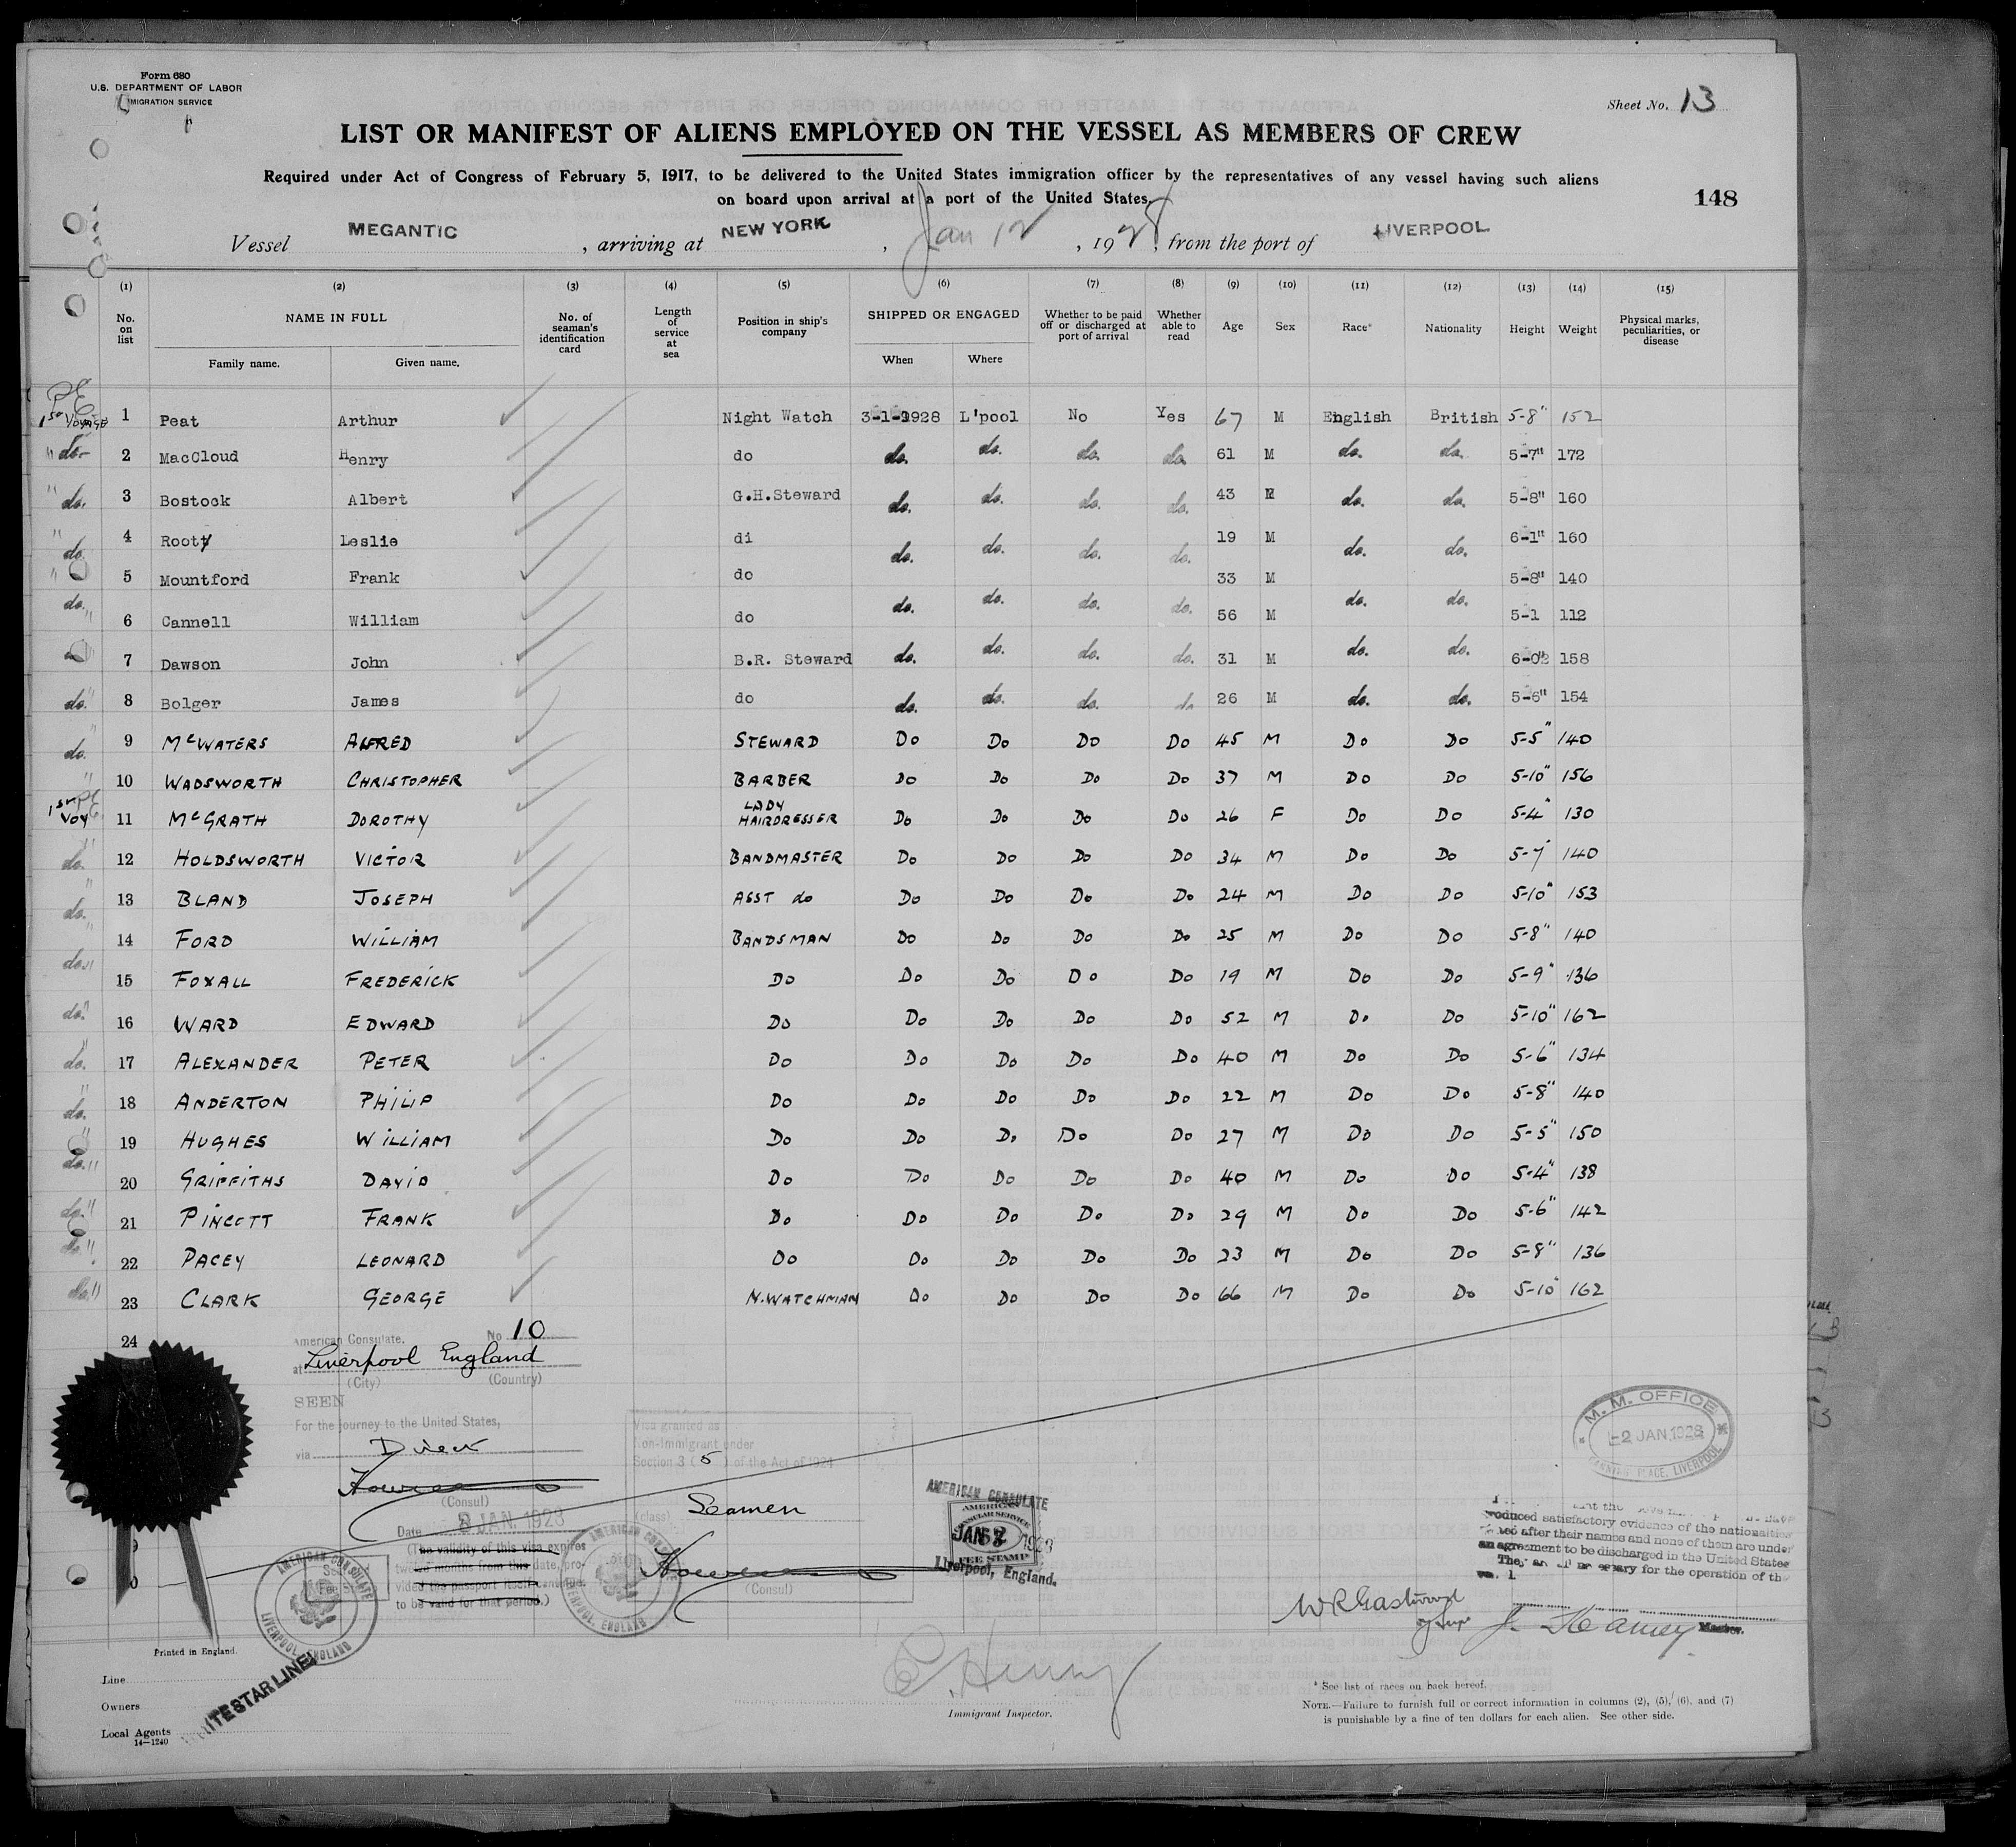 Form 680
U.S. DEPARTMENT OF LABOR
IMMIGRATION SERVICE
Sheet No. 13
LIST OR MANIFEST OF ALIENS EMPLOYED ON THE VESSEL AS MEMBERS OF CREW
Required under Act of Congress of February 5, 1917, to be delivered to the United States immigration officer by the representatives of any vessel having such aliens
on board upon arrival at a port of the United States.
148
Vessel MEGANTIC, arriving at NEW YORK, Jan 12, 1928, from the port of LIVERPOOL
(1) (2) (3) (4) (5) (6) (7) (8) (9) (10) (11) (12) (13) (14) (15)
No. on list NAME IN FULL No. of seaman's identification card Length of service at sea Position in ship's company SHIPPED OR ENGAGED Whether to be paid off or discharged at port of arrival Whether able to read Age Sex Race* Nationality Height Weight Physical marks, peculiarities, or disease
Family name. Given name. When Where
1st Voyage 1 Peat Arthur Night Watch 3-1-1928 L'pool No Yes 67 M English British 5-8" 152
" do- 2 MacCloud Henry do do. do. do. do. 61 M do. do. 5-7" 172
" do. 3 Bostock Albert G.H.Steward do. do. do. do. 43 M do. do. 5-8" 160
" do. 4 Rooty Leslie di do. do. do. do. 19 M do. do. 6-1" 160
" 5 Mountford Frank do 33 M 5-8" 140
do. " 6 Cannell William do do. do. do. do. 56 M do. do. 5-1 112
7 Dawson John B.R. Steward do. do. do. do. 31 M do. do. 6-0½ 158
do. " 8 Bolger James do do. do. do. do 26 M do. do. 5-6" 154
do. " 9 McWATERS ALFRED STEWARD Do Do Do Do 45 M Do Do 5-5" 140
" 10 WADSWORTH CHRISTOPHER BARBER Do Do Do Do 37 M Do Do 5-10" 156
1st Voy 11 McGRATH DOROTHY LADY HAIRDRESSER Do Do Do Do 26 F Do Do 5-4" 130
do. " 12 HOLDSWORTH VICTOR BANDMASTER Do Do Do Do 34 M Do Do 5-7" 140
do. " 13 BLAND JOSEPH ASST do Do Do Do Do 24 M Do Do 5-10" 153
" 14 FORD WILLIAM BANDSMAN Do Do Do Do 25 M Do Do 5-8" 140
do. " 15 FOXALL FREDERICK Do Do Do Do Do 19 M Do Do 5-9" 136
do. " 16 WARD EDWARD Do Do Do Do Do 52 M Do Do 5-10" 162
do. " 17 ALEXANDER PETER Do Do Do Do Do 40 M Do Do 5-6" 134
do. " 18 ANDERTON PHILIP Do Do Do Do Do 22 M Do Do 5-8" 140
" 19 HUGHES WILLIAM Do Do Do Do Do 27 M Do Do 5-5" 150
do. " 20 GRIFFITHS DAVID Do Do Do Do Do 40 M Do Do 5-4" 138
do. " 21 PINCOTT FRANK Do Do Do Do Do 29 M Do Do 5-6" 142
do. " 22 PACEY LEONARD Do Do Do Do Do 23 M Do Do 5-8" 136
do. " 23 CLARK GEORGE N.WATCHMAN Do Do Do Do 66 M Do Do 5-10" 162
24
American Consulate. No 10
at Liverpool England
(City) (Country)
SEEN
For the journey to the United States,
via Direct
(Consul)
Date 3 JAN. 1928
(The validity of this visa expires
twelve months from this date, pro-
vided the passport itself continues
to be valid for that period.)
Visa granted as
Non-Immigrant under
Section 3 (5) of the Act of 1924
Seamen
(class)
(Consul)
AMERICAN CONSULATE
LIVERPOOL, ENGLAND
AMERICAN CONSULATE
LIVERPOOL, ENGLAND
AMERICAN CONSULATE
AMERICAN
CONSULAR SERVICE
JAN 1928
FEE STAMP
Liverpool, England.
M. M. OFFICE
2 JAN 1928
CANNING PLACE, LIVERPOOL
produced satisfactory evidence of the nationalities
after their names and none of them are under
an agreement to be discharged in the United States
They are all necessary for the operation of the
W R Eastwood
Master.
Printed in England.
Line
Owners
Local Agents
14-1240
WHITE STAR LINE
C. Henry
Immigrant Inspector.
* See list of races on back hereof.
NOTE.—Failure to furnish full or correct information in columns (2), (5), (6), and (7)
is punishable by a fine of ten dollars for each alien. See other side.